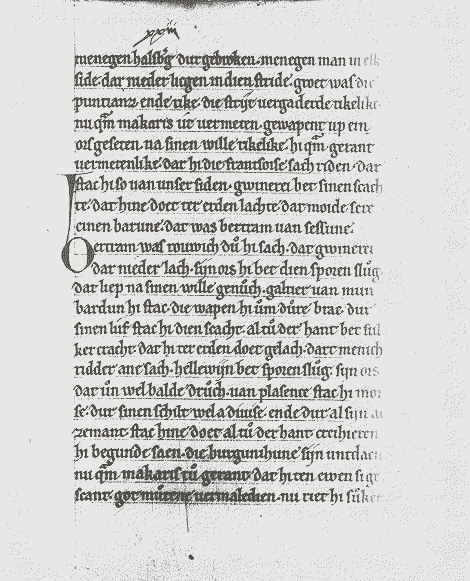 xxiii
menegen halsbg durgebroken. menegen man in elk
side. dar neder ligen in dien stride. groet was die
puntianz. ende rike. die strijt vergaderde rikelike
nu qm makaris ut vermeten. gewapent up ein
ors geseten. na sinen wille rikelike. hi qm gerant
vermetenlike. dar hi die fransoise sach riden. dar
stac hi so van unser siden. gwineri bet sinen scach
te. dat hine doet ter erden lachte. dat moide sere
einen barune. dat was bertram van sessune.
Bertram was rouwich du hi sach. dat gwineri
dar neder lach. sijn ors hi bet dien sporen slug
dat liep na sinen wille genuch. galtier van mun
bardun hi stac. die wapen hi um dure brac. dur
sinen lijf stac hi dien scacht. al tu der hant bet sul
ker cracht. dat hi ter erden doet gelach. dart menich
ridder ane sach. hellewijn bet sporen slug. sijn ors
dat un wel balde druch. van plasence stac hi
se. dur sinen schilt wel a diuise. ende dur al sijn
zemant. stac hine doet al tu der hant.
hi begunde saen. die burgunihune sijn
nu qm makaris tu gerant. dat hi ten ewen
scant. got mutene vermaledien. nu riet hi